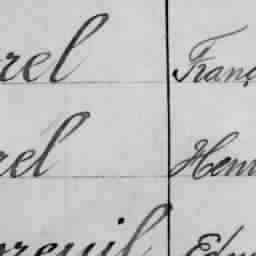 rel Franç
rel Henr
reuil Edm